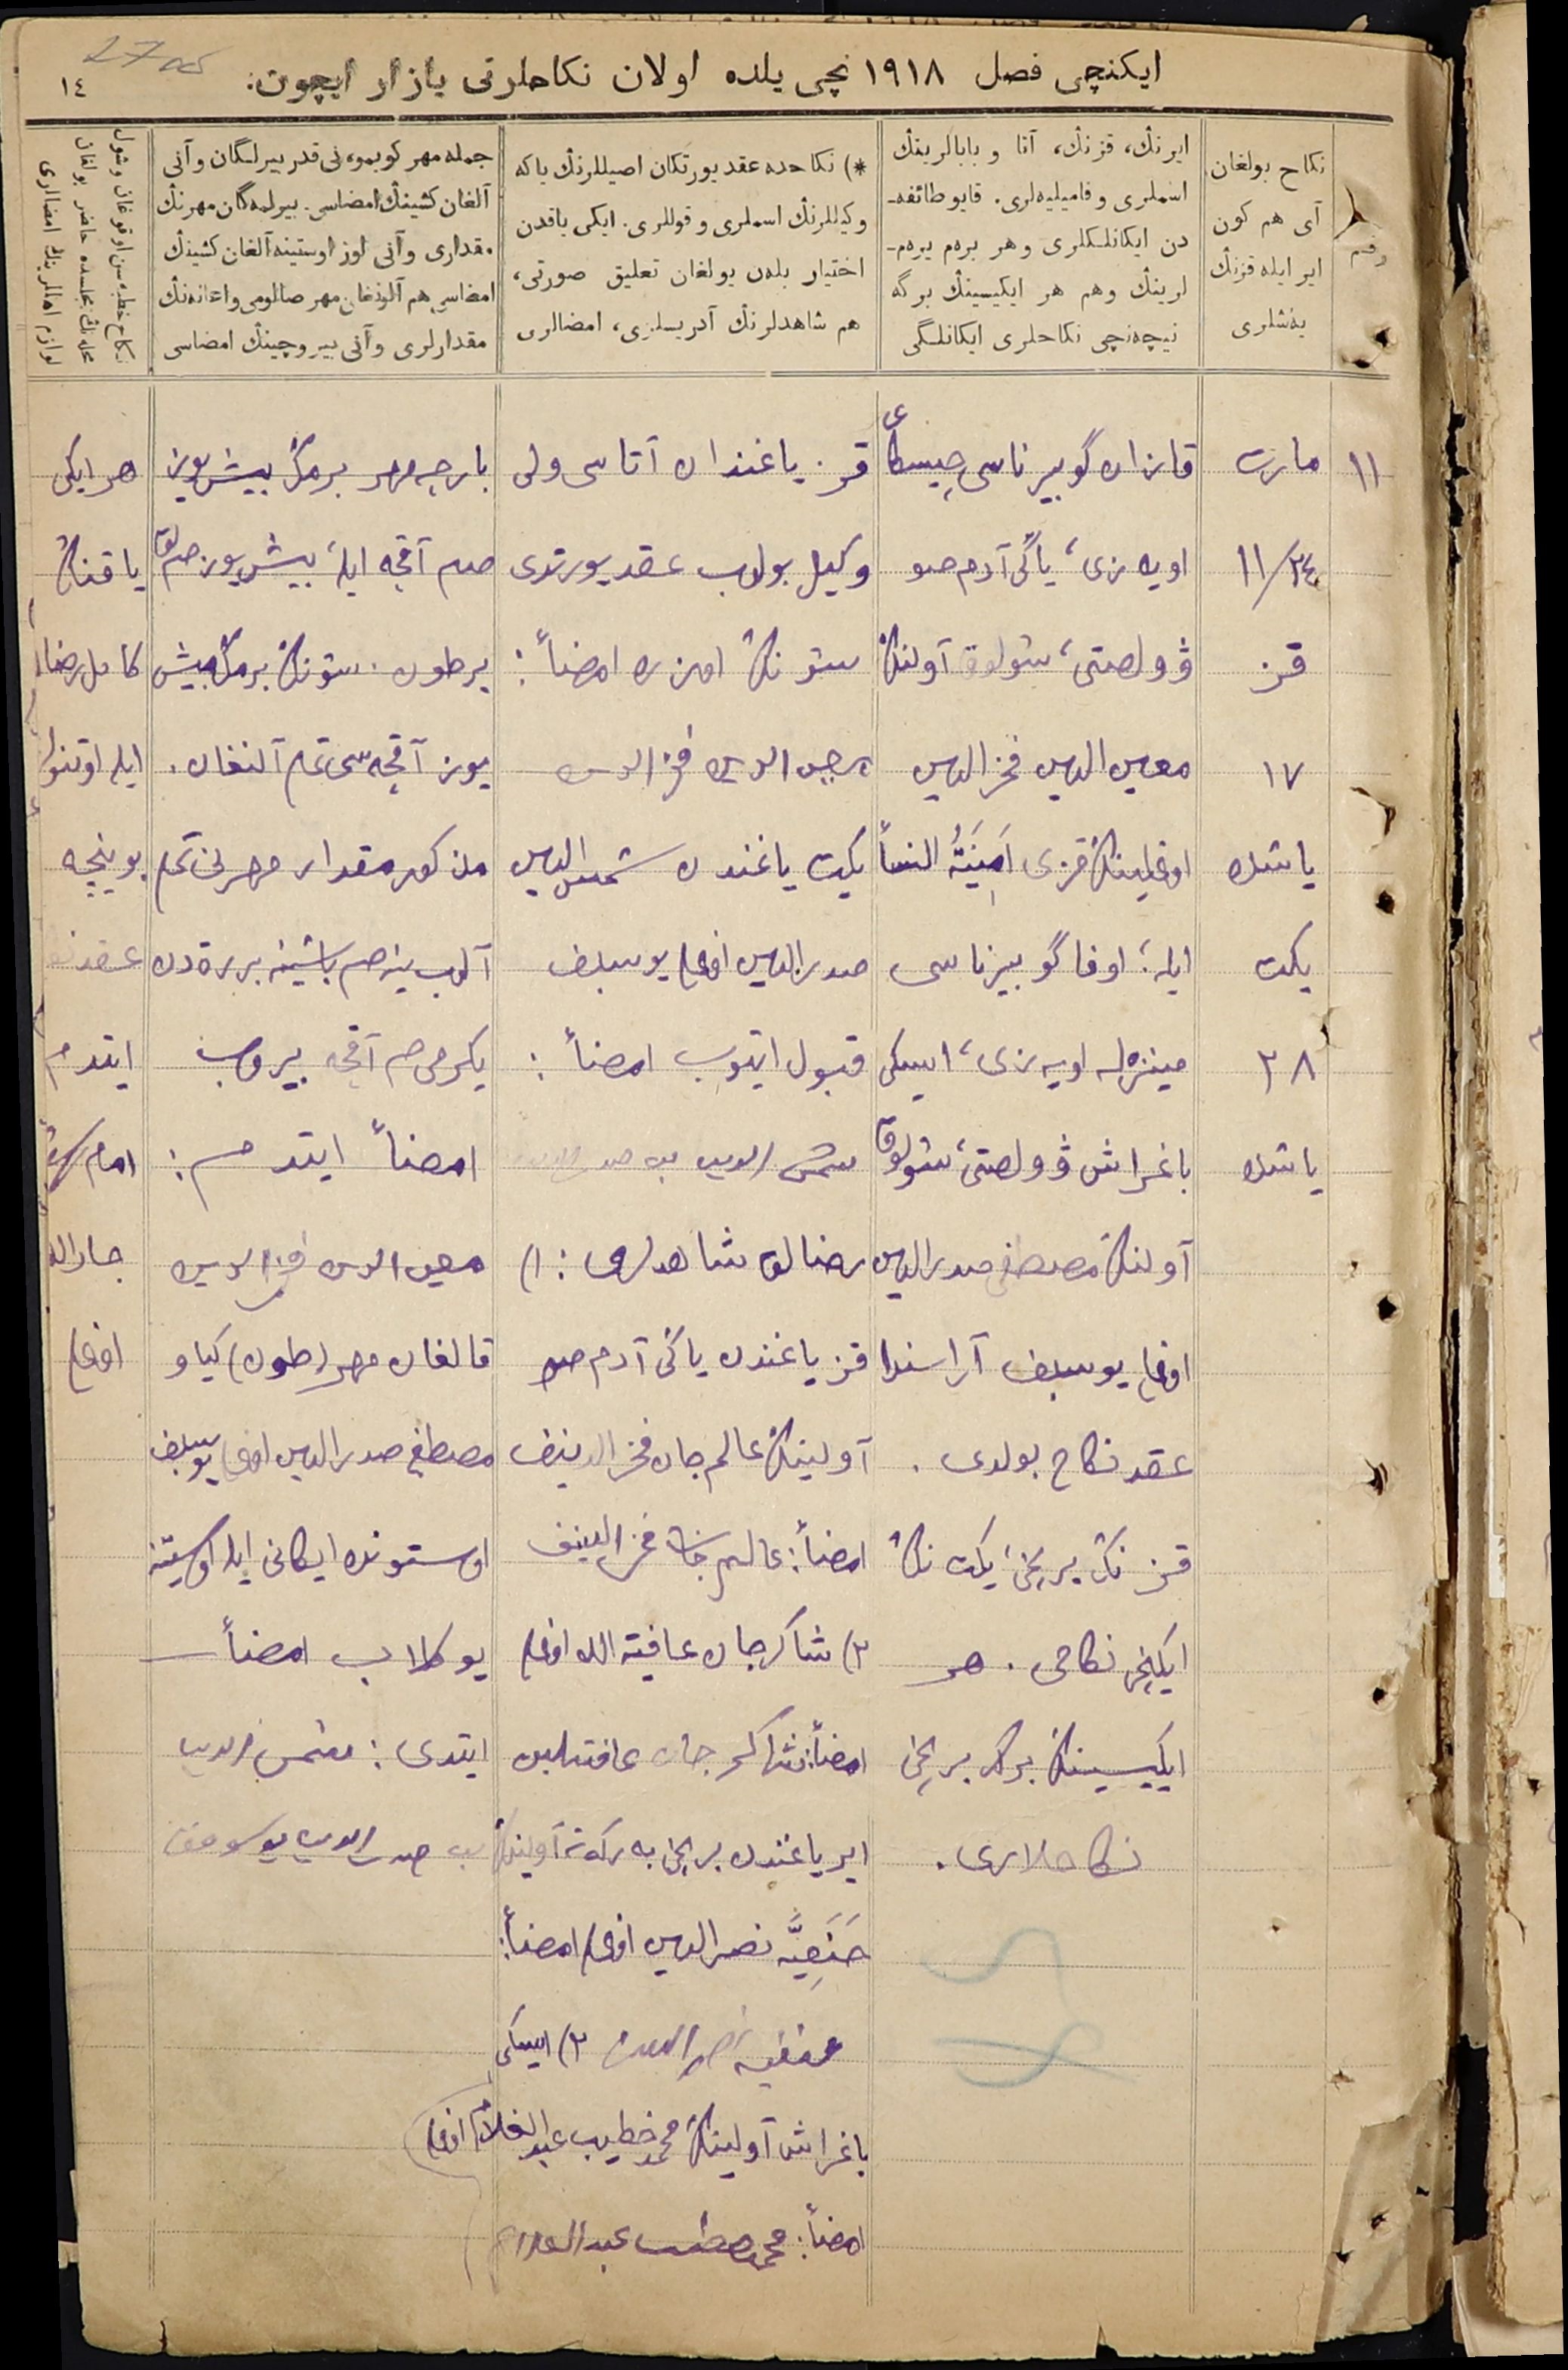 ايكنچی فصل ١٩١٨ نچی يلده اولان نكاحلرنی يازار ايچون:
١٤
27
رقم
نكاح بولغان
آی هم كون
اير ايله قزنڭ
يه‌شلری
ايرنڭ، قزنڭ، آتا و بابالرينڭ
اسملری و فاميليه‌لری. قايو طائفه‌-
دن ايكانلكلری و هر برم يره‌م-
لرينڭ وهم هر ايكيسينڭ برگه
نيچه‌نچی نكاحلری ايكانلگی
*) نكاحده عقد يورتكان اصيللرنڭ ياكه
وكيللرنڭ اسملری و قوللری. ايكی ياقدن
اختيار بلەن بولغان تعليق صورتی،
هم شاهدلرنڭ آدريسلری، امضالری
جمله مهر كوبمو، نی قدر بيرلگان و آنی
آلغان كشينڭ امضاسی. بيرلمه‌گان مهرنڭ
مقداری و آنی اوز اوستينه آلغان كشينڭ
امضاسی هم آلونغان مهر صالومی و اعانه‌نڭ
مقدارلری و آنی بيروچينڭ امضاسی
نكاح خطبه‌سن اوقوغان و شول
مجلسده حاضر بولغان
لوازم امضالری
١١
مارت
١١/٢٤
قز
١٧
ياشده
يكت
٢٨
ياشده
قازان گوبيرناسی چيسطای
اويه‌زی، ياڭی آدم صو
ڤولصتی، شولوق آولنڭ
معين الدين فخرالدين
اوغلينڭ قزی اَمِينَةُ النسأ
ايله، اوفا گوبيرناسی
مينزه‌له اويه‌زی، ايسكی
باغراش ڤولصتی، شولوق
آولنڭ مصطفی صدرالدين
اوغلی يوسيف آراسندا
عقد نكاح بولدی.
قزنڭ برنچی، يكت نڭ
ايكنچی نكاحی. هر
ايكيسينڭ برگه برنچی
نكاحلاری.
قز ياغندان آتاسی ولی
وكيل بولوب عقد يورتدی
شونڭ اوزره امضأ:
معين الدين فخرالدين
يكت ياغندن شمس الدين
صدرالدين اوغلی يوسيف
قبول ايتوب امضأ:
شمس الدين بن صدرالدين
رضالق شاهدلری: ١)
قز ياغندن ياڭی آدم صو
آولينڭ عالم جان فخرالدينف
امضأ: عالم جان فخرالدينف
٢) شاكرجان عافية الله اوغلی
امضأ: شاكر جان عافتللين
اير ياغندن برنچی به‌ركه‌ته آولينڭ
حَنَفِيَّه نصرالدين اوغلی امضأ:
حنفيه نصرالدين ٢) ايسكی
باغراش آولينڭ محمدخطيب عبدالغلام اوغلی
امضأ: محمد خطيب عبدالغلام
بارچه مهر برمڭ بيش يوز
صم آقچه ايله، بيش يوز صملق
بر طون. شونڭ برمڭ بيش
يوز آقچه‌سی تمام آلنغان.
مذكور مقدار مهرنی تمام
آلوب يوز صم باشينه برەردن
يكرمی صم آقچه بيروب
امضأ ايتدم:
معين الدين فخرالدين
قالغان مهر (طون) كياو
مصطفی صدرالدين اوغلی يوسيف
اوستونده ايكانی ايله اوستينه
يوكلاب امضأ
ايتدی: شمس الدين
بن صدرالدين يوسوف
هر ايكی
ياقنڭ
كامل رضا
ايله اوتنو
بوينچه
عقد
ايتدم
امام
جارالله
اوغلی